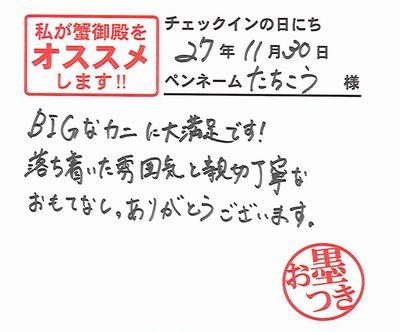 私が蟹御殿を
オススメ
します!!
チェックインの日にち
27年11月30日
ペンネーム たちこう 様
BIGなカニに大満足です!
落ち着いた雰囲気と親切丁寧な
おもてなし。ありがとうございます。
お墨つき